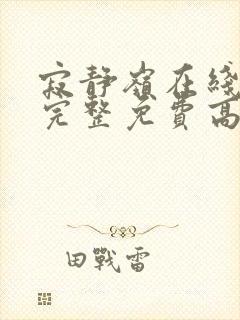 寂靜嶺在綫
完整免費高
田戰雷